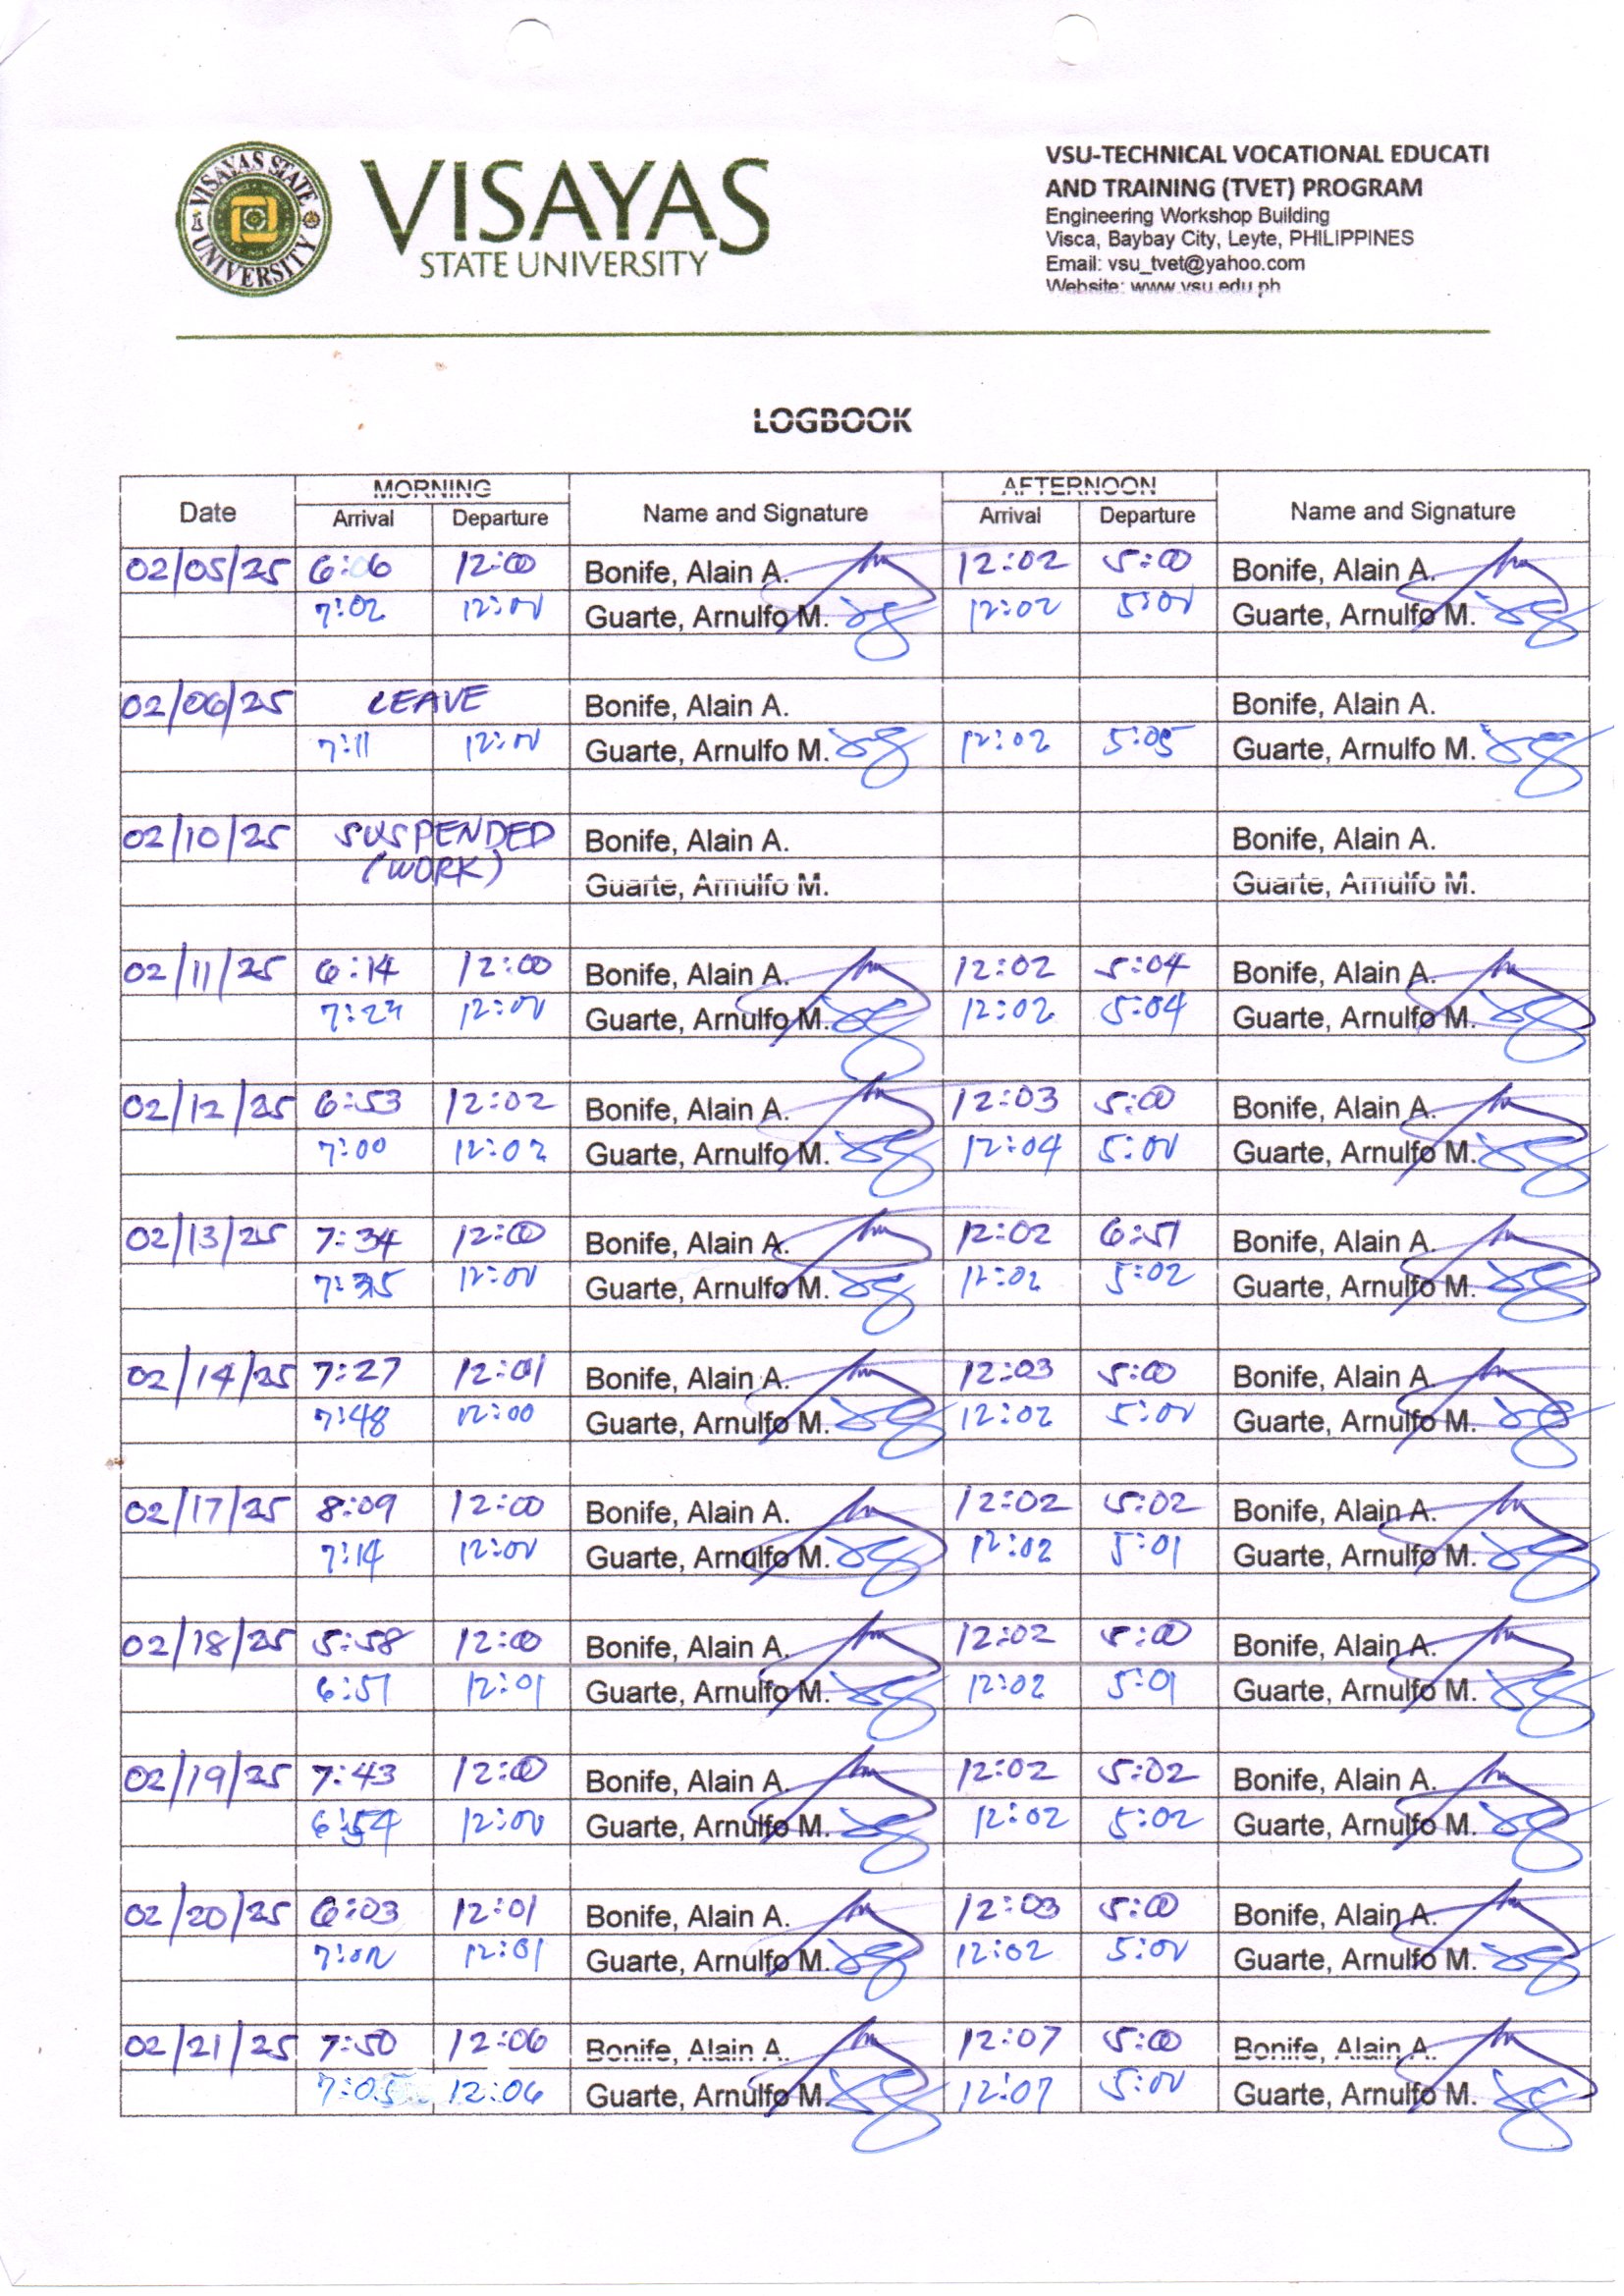 VISAYAS STATE UNIVERSITY
VISAYAS
STATE UNIVERSITY
VSU-TECHNICAL VOCATIONAL EDUCATI
AND TRAINING (TVET) PROGRAM
Engineering Workshop Building
Visca, Baybay City, Leyte, PHILIPPINES
Email: vsu_tvet@yahoo.com
Website: www.vsu.edu.ph
LOGBOOK
Date MORNING Name and Signature AFTERNOON Name and Signature
Arrival Departure Arrival Departure
02/05/25 6:06 12:00 Bonife, Alain A. 12:02 5:00 Bonife, Alain A.
7:02 12:00 Guarte, Arnulfo M. 12:02 5:00 Guarte, Arnulfo M.
02/06/25 LEAVE Bonife, Alain A. Bonife, Alain A.
7:11 12:00 Guarte, Arnulfo M. 12:02 5:05 Guarte, Arnulfo M.
02/10/25 SUSPENDED Bonife, Alain A. Bonife, Alain A.
(WORK) Guarte, Arnulfo M. Guarte, Arnulfo M.
02/11/25 6:14 12:00 Bonife, Alain A. 12:02 5:04 Bonife, Alain A.
12:00 Guarte, Arnulfo M. 12:02 5:04 Guarte, Arnulfo M.
02/12/25 6:53 12:02 Bonife, Alain A. 12:03 5:00 Bonife, Alain A.
7:00 12:02 Guarte, Arnulfo M. 12:04 5:00 Guarte, Arnulfo M.
02/13/25 7:34 12:00 Bonife, Alain A. 12:02 6:51 Bonife, Alain A.
7:35 12:00 Guarte, Arnulfo M. 12:02 5:02 Guarte, Arnulfo M.
02/14/25 7:27 12:01 Bonife, Alain A. 12:03 5:00 Bonife, Alain A.
7:48 12:00 Guarte, Arnulfo M. 12:02 5:00 Guarte, Arnulfo M.
02/17/25 8:09 12:00 Bonife, Alain A. 12:02 5:02 Bonife, Alain A.
7:14 12:00 Guarte, Arnulfo M. 12:02 5:01 Guarte, Arnulfo M.
02/18/25 5:58 12:00 Bonife, Alain A. 12:02 5:00 Bonife, Alain A.
6:51 12:01 Guarte, Arnulfo M. 12:02 5:01 Guarte, Arnulfo M.
02/19/25 7:43 12:00 Bonife, Alain A. 12:02 5:02 Bonife, Alain A.
6:54 12:00 Guarte, Arnulfo M. 12:02 5:02 Guarte, Arnulfo M.
02/20/25 6:03 12:01 Bonife, Alain A. 12:03 5:00 Bonife, Alain A.
12:01 Guarte, Arnulfo M. 12:02 5:00 Guarte, Arnulfo M.
02/21/25 7:50 12:06 Bonife, Alain A. 12:07 5:00 Bonife, Alain A.
7:05 12:06 Guarte, Arnulfo M. 12:07 5:00 Guarte, Arnulfo M.